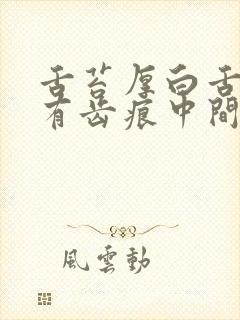 舌苔厚白舌
有齿痕中間
風雲動